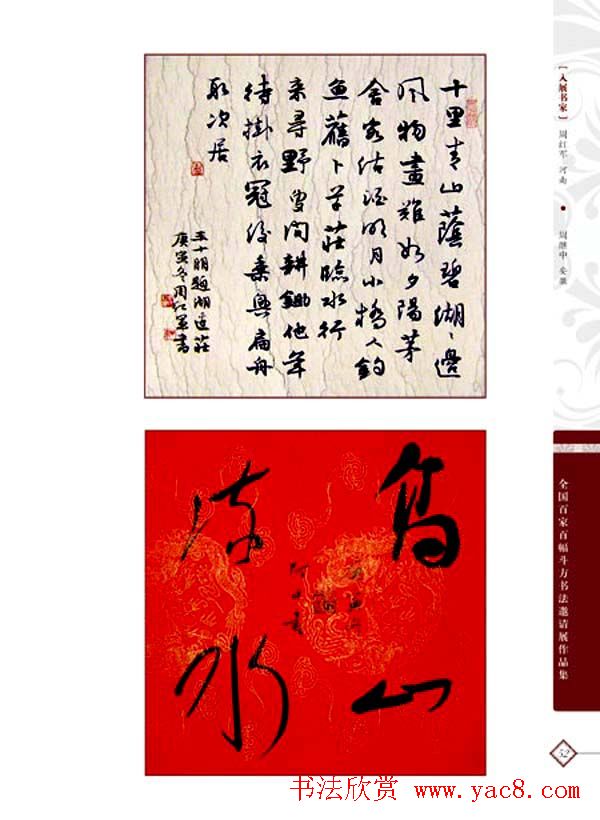 十里青山蔭碧湖〻邊
风物畫難如夕陽茅
舍客沽酒明月小橋人釣
魚舊卜草莊臨水竹
来尋野叟问耕鋤他年
待掛衣冠後乘興扁舟
取次居
王十朋題湖邊莊
庚寅冬周红军書
高山
流水
[入展书家] 周红军 河南 • 周继中 安徽
全国百家百幅斗方书法邀请展作品集
52
书法欣赏 www.yac8.com